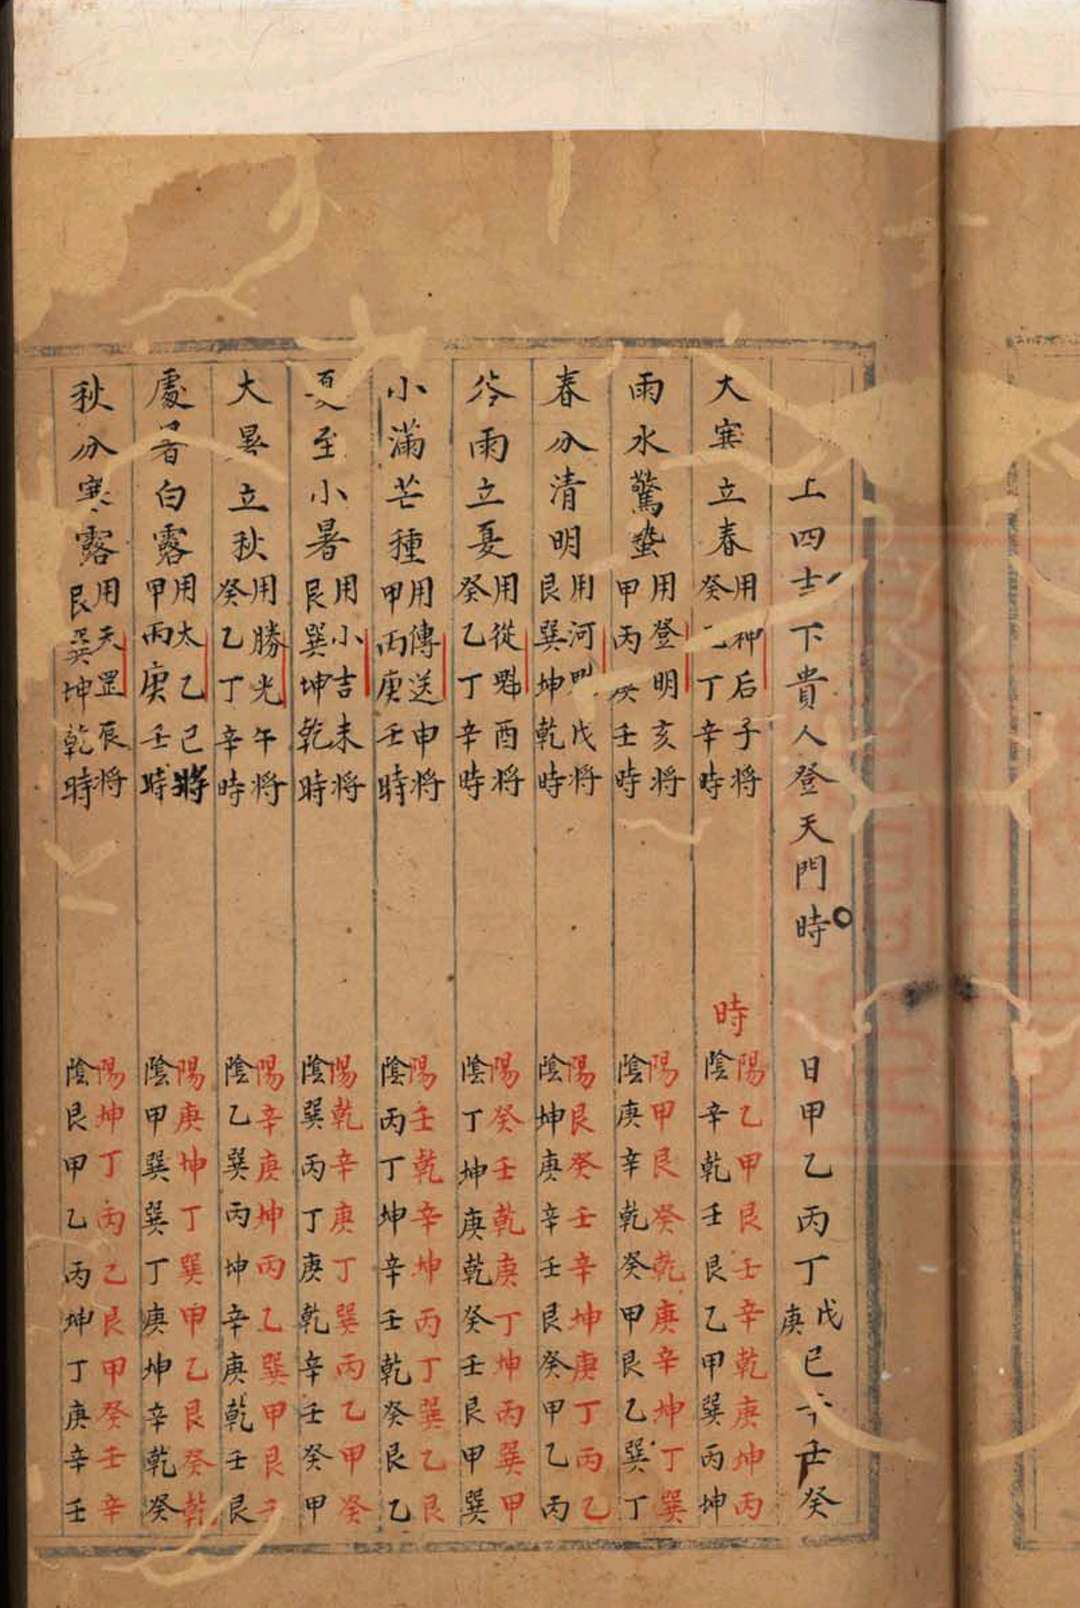 上四吉下貴人登天門時 日甲乙丙丁戊庚已辛壬癸
大寒立春 用神后子將 癸乙丁辛時
時 陽乙甲艮壬辛乾庚坤丙
陰辛乾壬艮乙甲巽丙坤
雨水驚蟄 用登明亥將 甲丙庚壬時
陽甲艮癸乾庚辛坤丁巽
陰庚辛乾癸甲艮乙巽丁
春分清明 用河魁戌將 艮巽坤乾時
陽艮癸壬辛坤庚丁丙乙
陰坤庚辛壬艮癸甲乙丙
谷雨立夏 用從魁酉將 癸乙丁辛時
陽癸壬乾庚丁坤丙巽甲
陰丁坤庚乾癸壬艮甲巽
小滿芒種 用傳送申將 甲丙庚壬時
陽壬乾辛坤丙丁巽乙艮
陰丙丁坤辛壬乾癸艮乙
夏至小暑 用小吉未將 艮巽坤乾時
陽乾辛庚丁巽丙乙甲癸
陰巽丙丁庚乾辛壬癸甲
大暑立秋 用勝光午將 癸乙丁辛時
陽辛庚坤丙乙巽甲艮壬
陰乙巽丙坤辛庚乾壬艮
處暑白露 用太乙已將 甲丙庚壬時
陽庚坤丁巽甲乙艮癸乾
陰甲巽巽丁庚坤辛乾癸
秋分寒露 用天罡辰將 艮巽坤乾時
陽坤丁丙乙艮甲癸壬辛
陰艮甲乙丙坤丁庚辛壬